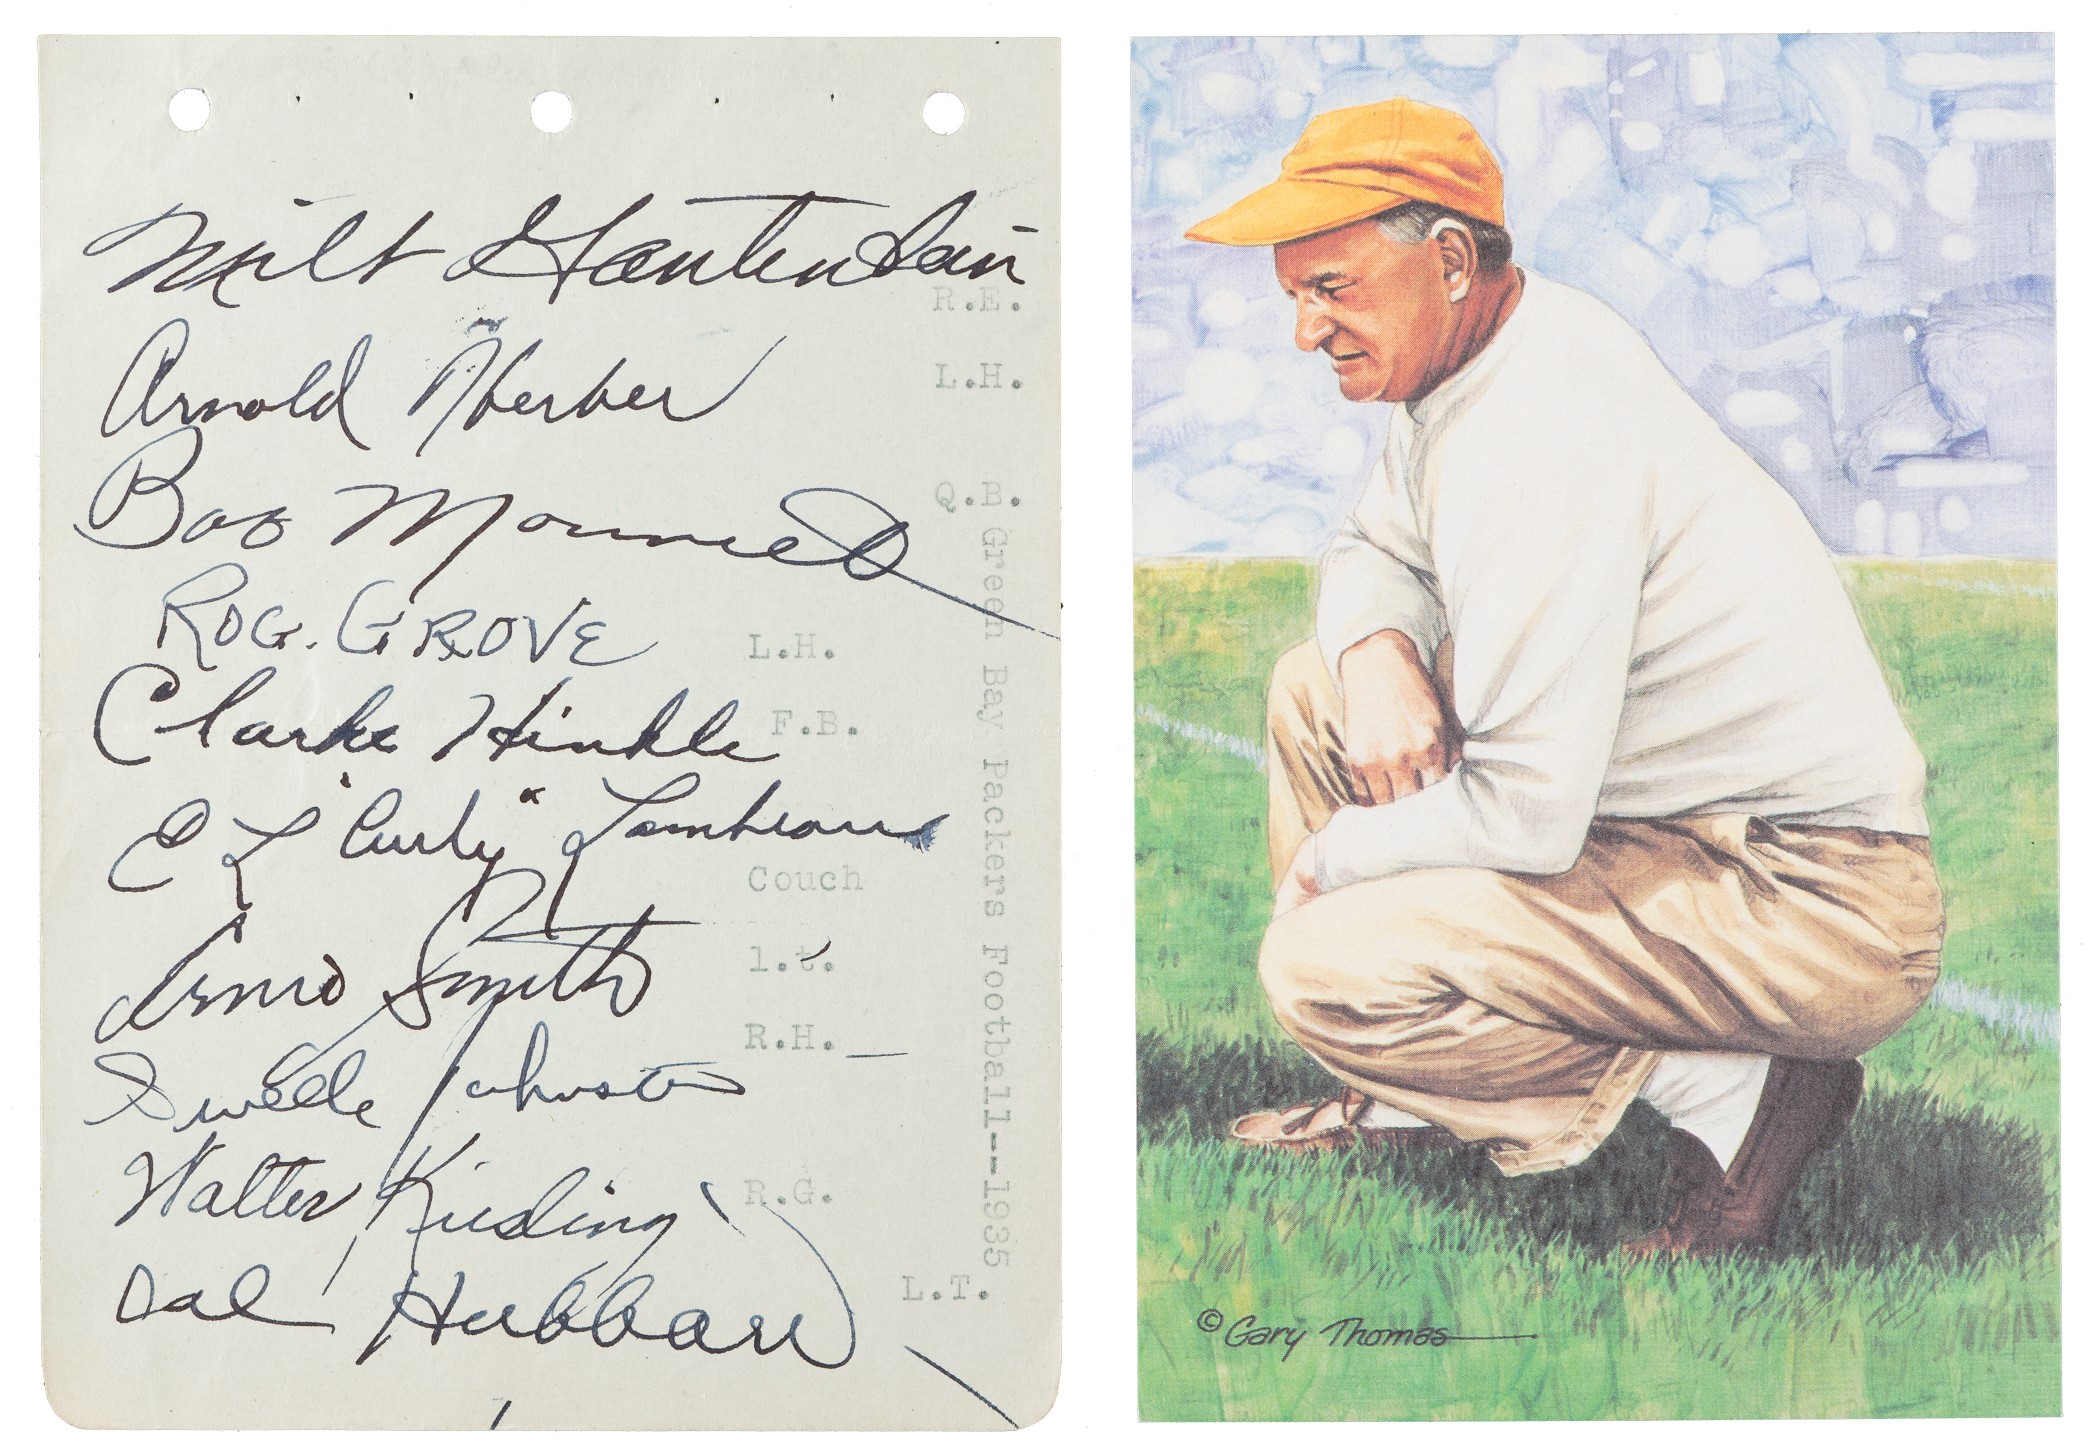 Milt Gantenbein
R.E.
Arnold Herber
L.H.
Bob Monnett
Q.B.
ROG. GROVE
L.H.
Clarke Hinkle
F.B.
E L "Curly" Lambeau
Couch
Ernie Smith
l.t.
Swede Johnston
R.H.
Walter Kiesling
R.G.
Cal Hubbard
L.T.
Green Bay Packers Football--1935
© Gary Thomas